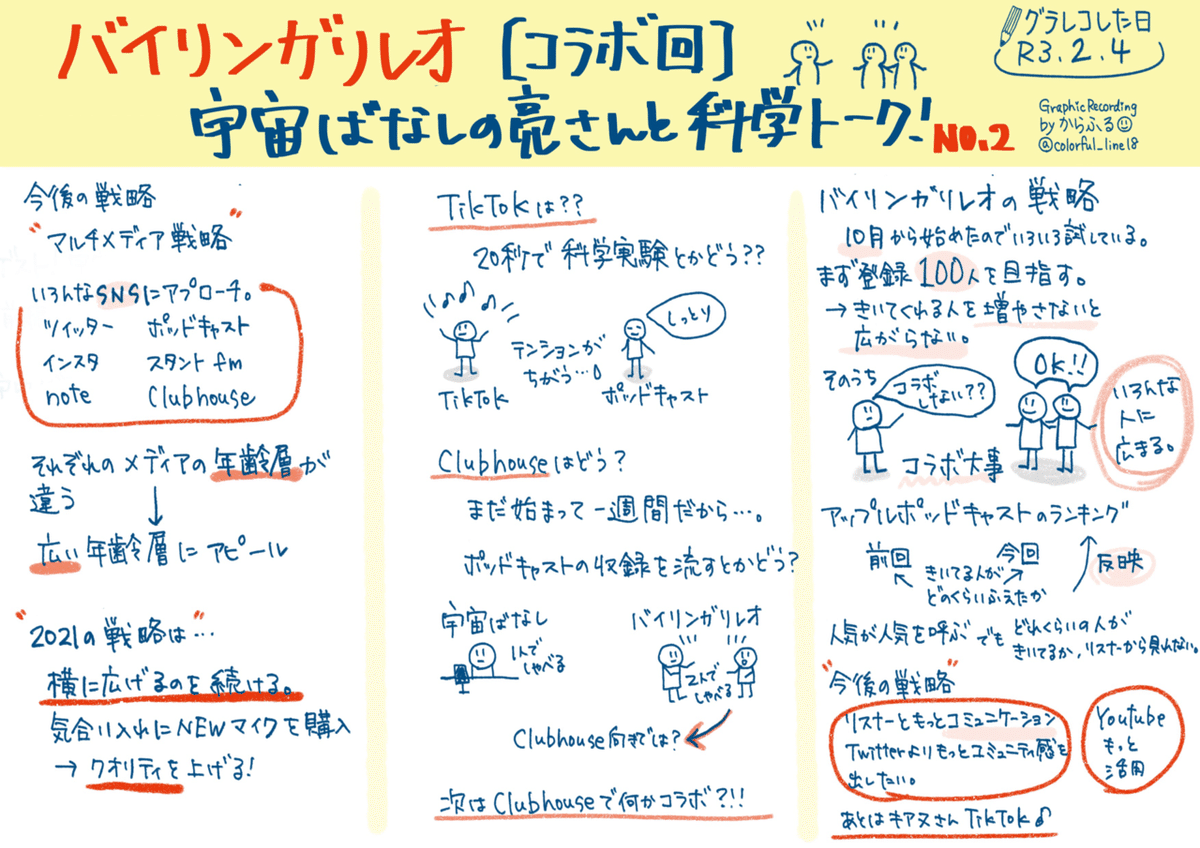 バイリンガリレオ [コラボ回]
宇宙ばなしの亮さんと科学トーク! NO.2
グラレコした日
R3.2.4
Graphic Recording
by からふる
@colorful_line18
今後の戦略
"マルチメディア戦略"
いろんなSNSにアプローチ。
ツイッター ポッドキャスト
インスタ スタンドfm
note Clubhouse
それぞれのメディアの年齢層が
違う
↓
広い年齢層にアピール
"2021の戦略は…"
横に広げるのを続ける。
気合い入れにNEWマイクを購入
→ クオリティを上げる!
TikTokは??
20秒で科学実験とかどう??
しっとり
テンションが
ちがう…。
TikTok ポッドキャスト
Clubhouseはどう?
まだ始まって一週間だから…。
ポッドキャストの収録を流すとかどう?
宇宙ばなし バイリンガリレオ
1人で
しゃべる
2人で
しゃべる
Clubhouse向きでは?
次はClubhouseで何かコラボ?!!
バイリンガリレオの戦略
10月から始めたのでいろいろ試している。
まず登録100人を目指す。
→ きいてくれる人を増やさないと
広がらない。
そのうち
コラボ
しない??
OK!!
いろんな
人に
広まる。
コラボ大事
アップルポッドキャストのランキング
前回 今回
きいてる人が
どのくらいふえたか
反映
人気が人気を呼ぶ でも どれくらいの人が
きいてるか、リスナーから見れない。
"今後の戦略"
リスナーともっとコミュニケーション
Twitterよりもっとコミュニティ感を
出したい。
Youtube
もっと
活用
あとはキアヌさんTikTok♪